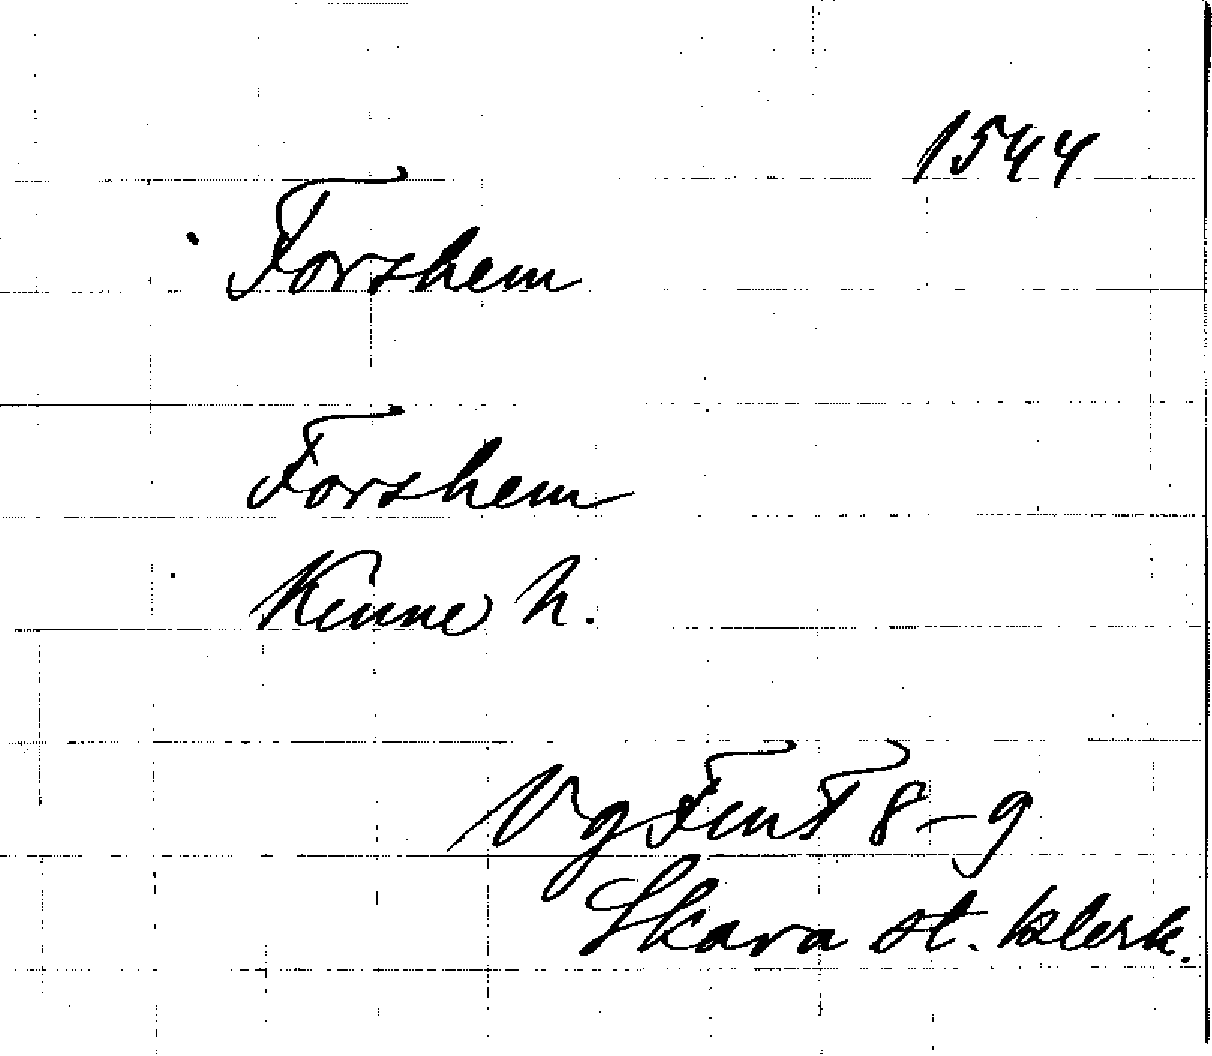 1544
Forshem
Forshem
Kinne h.
Vg FmT 8-9
Skara st. klerk.